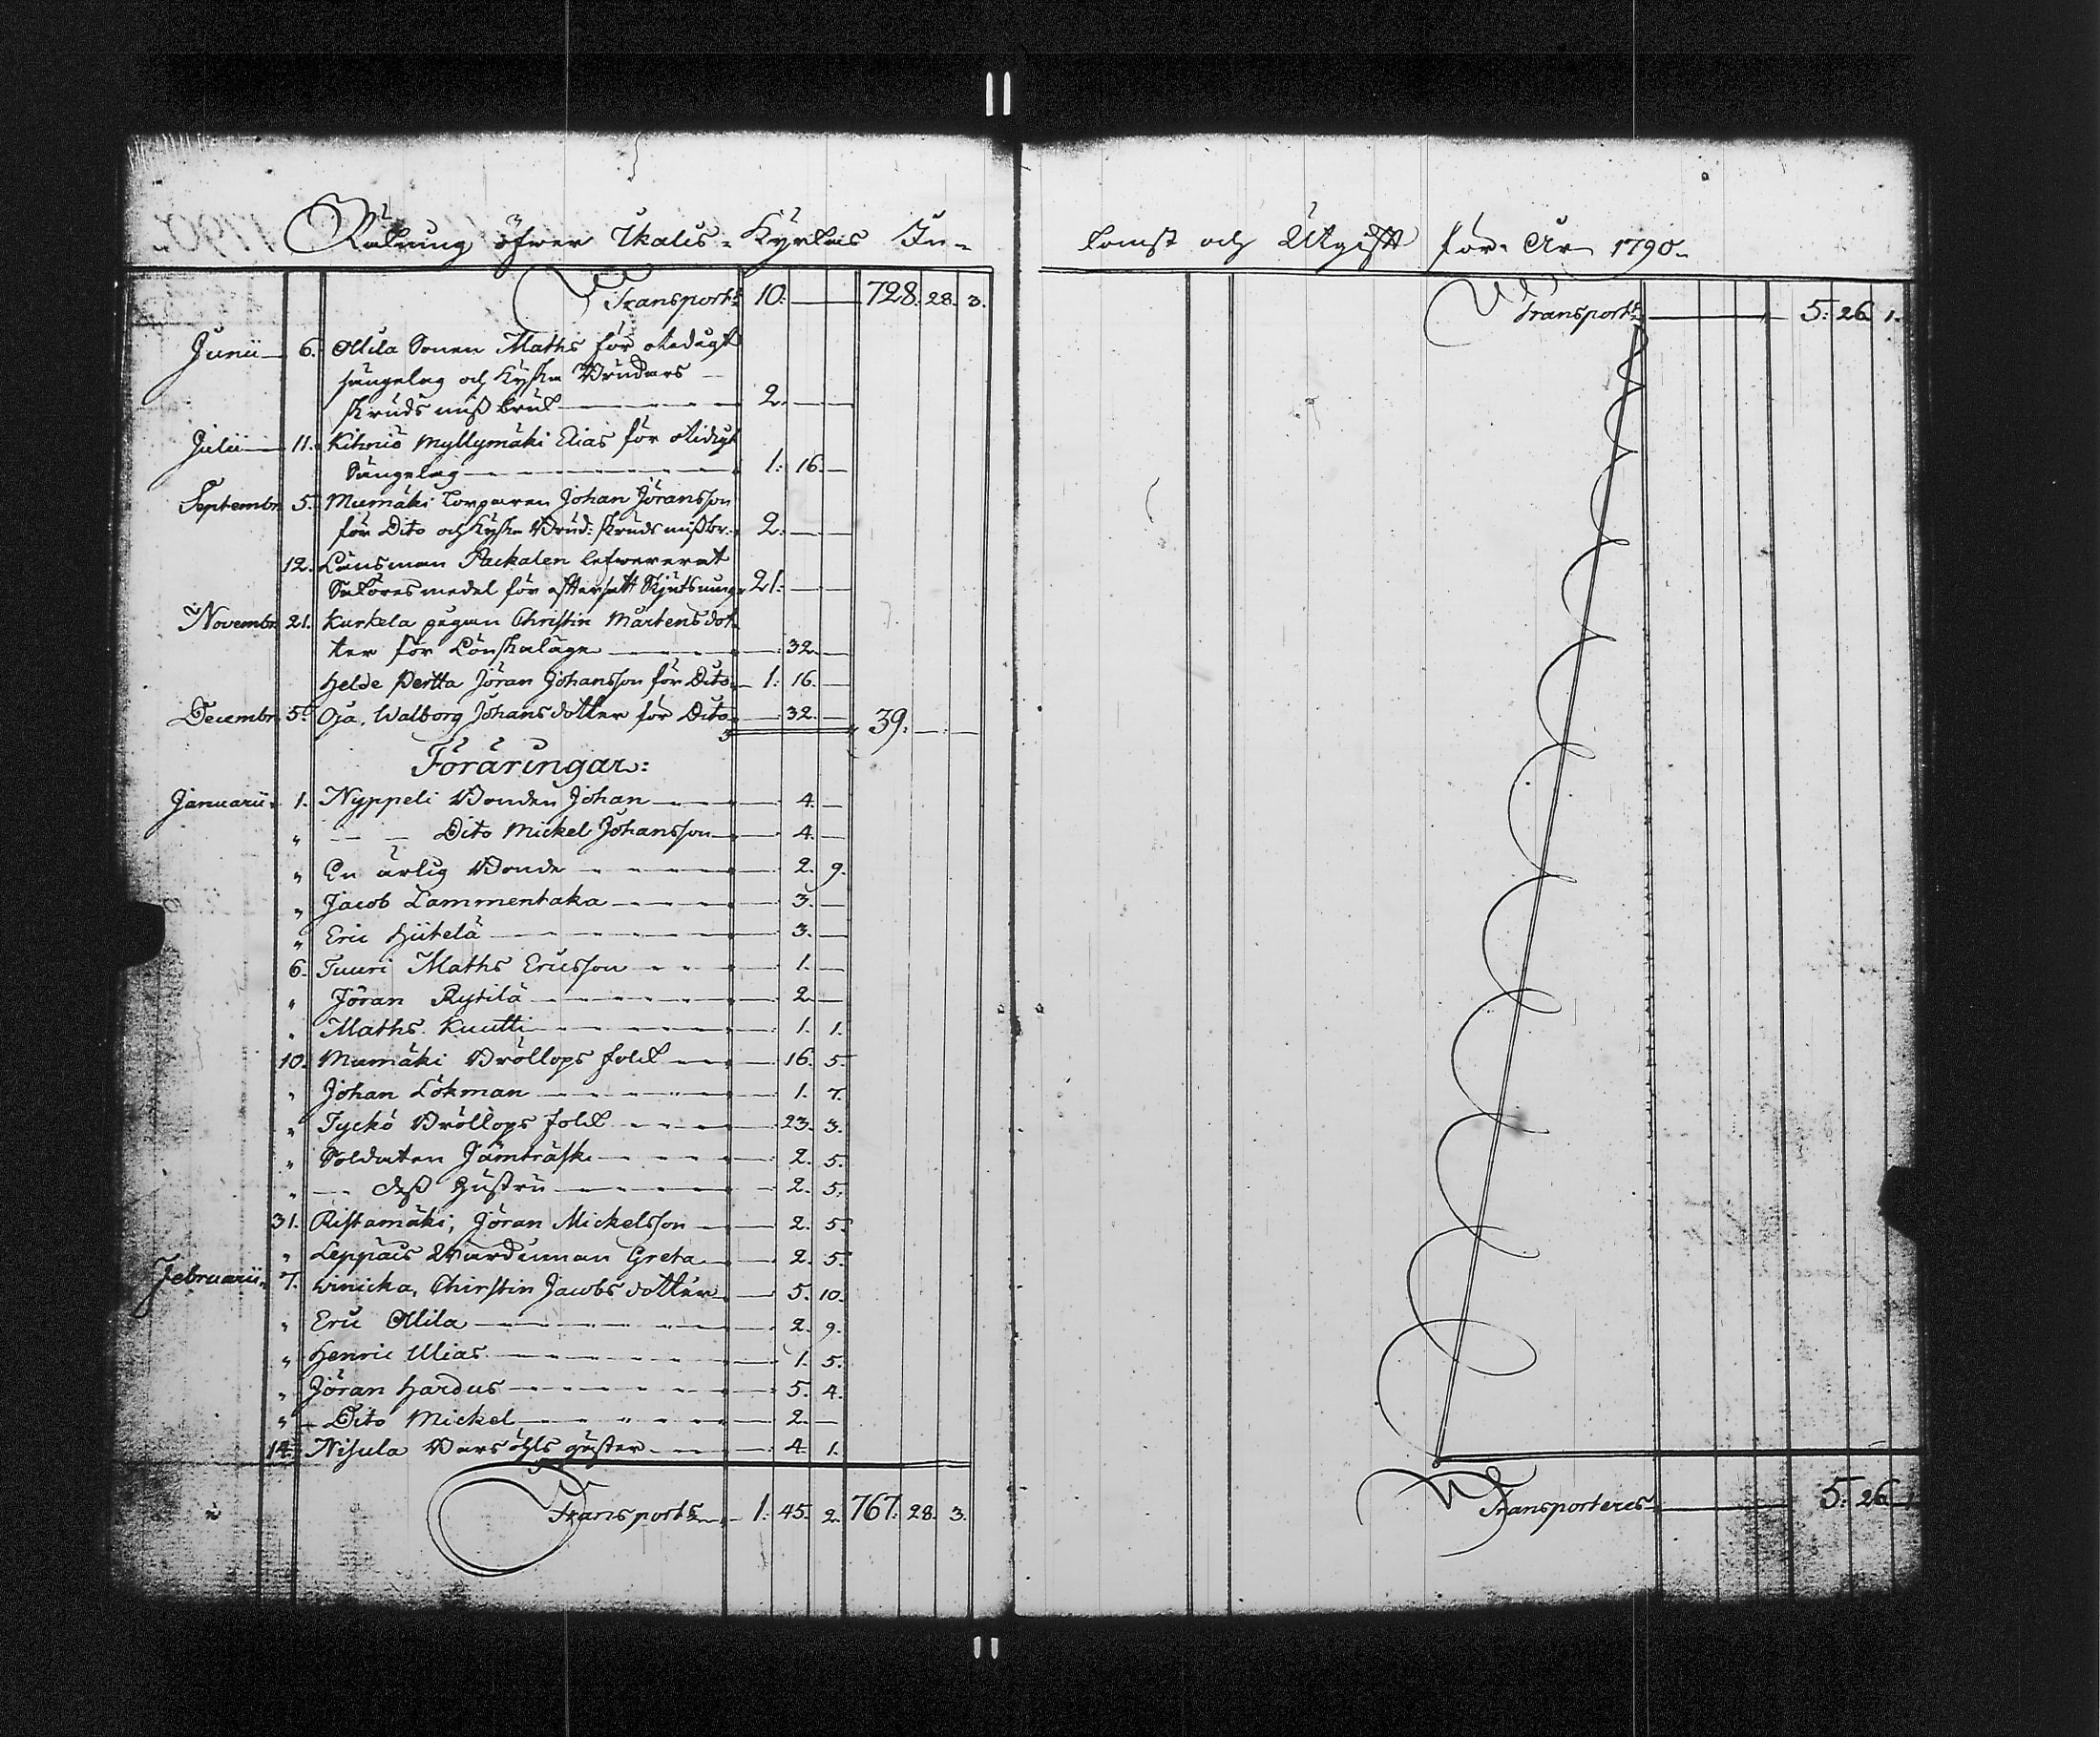 Räkning öfwer Ikalis Kyrkas In-
Transport: 10. — 728. 28. 3.
Junii 6. Ollila Sonen Maths för otidigt
sängelag och Kyska Brudars
skruds mißbruk 2. — —
Julii 11. Kihniö Myllymäki Elias för otidigt
Sängelag 1: 16. —
Septembr. 5. Mumäki Torparen Johan Jöransson
för Dito och Kyska Brud: skruds mißbr. 2. — —
12. Länsman Packalen lefwererat
Saköresmedel för eftersatt Skjutsning 21. — —
Novembr. 21. Kurkela pigan Christin Mårtensdot-
ter för Lönskaläge — 32. —
Helde Pertta Jöran Johansson för Dito 1: 16. —
Decembr. 5. Oja, Walborg Johansdotter för Dito — 32. — 39. — —
Föräringar:
Januarii 1. Nyppeli Bonden Johan — 4. —
" — — Dito Mickel Johansson — 4. —
" En ärlig Bonde — 2. 9.
" Jacob Lammentaka — 3. —
" Eric Hiitelä — 3. —
6. Tuuri Maths Ericsson — 1. —
" Jöran Rytilä — 2. —
" Maths Kuutti — 1. 1.
10. Mumäki Bröllops folck — 16. 5.
" Johan Lökman — 1. 7.
" Tyckö Bröllops folck — 23. 3.
" Soldaten Jämträsk — 2. 5.
" — deß Hustru — 2. 5.
31. Ristamäki, Jöran Mickelsson — 2. 5.
" Leppäis Wärdinnan Greta — 2. 5.
Februarii 7. Winicka, Chirstin Jacobsdotter — 5. 10.
" Eric Ollila — 2. 9.
" Henric Ulias — 1. 5.
" Jöran Hardus — 5. 4.
" — Dito Mickel — 2. —
14. Nisula Barsöhls gäster — 4. 1.
Transport: 1. 45. 2. 767. 28. 3.
komst och Utgift för År 1790.
Transport: — 5. 26. 1.
Transporteres — 5. 26. 1.